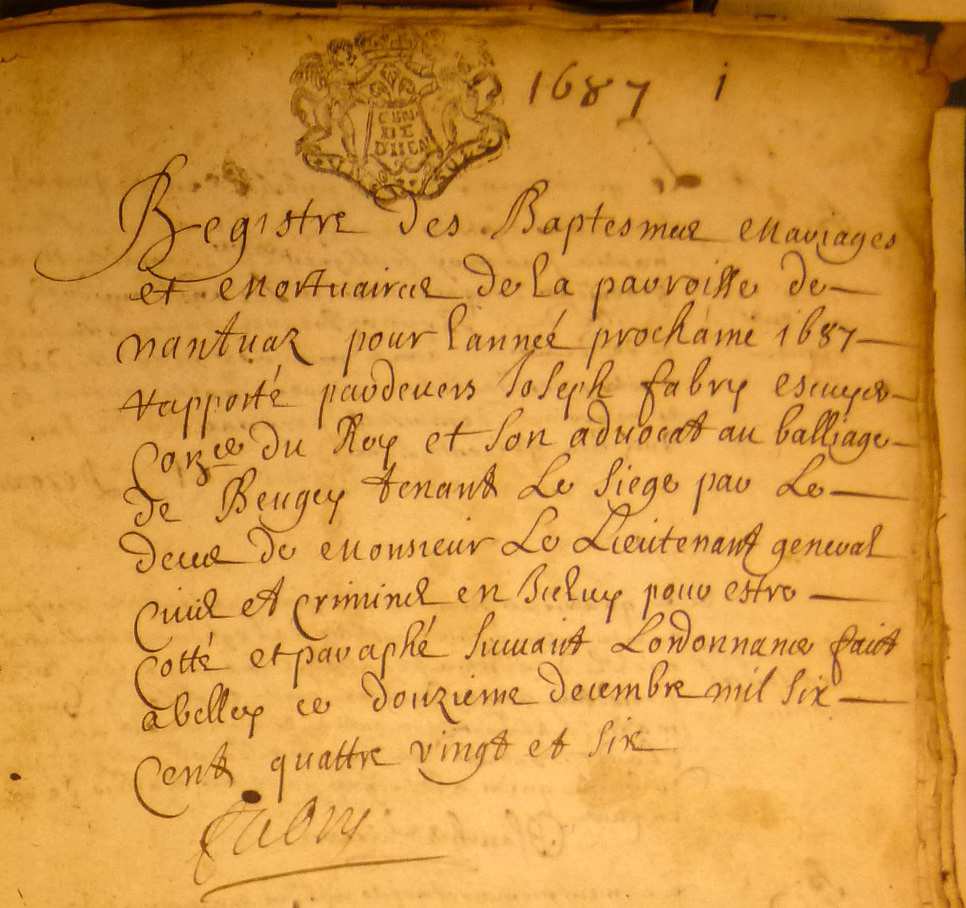 1687 1
CEN
DE
D'IIEN
Registre des Baptesmes Mariages
et Mortuaires de la parroisse de
nantuaz pour lannéé prochaine 1687
rapporté pardevers Joseph fabry escuyer
Con.er du Roy et son advocat au balliage
de Beugey tenant Le siege par Le
deces de Monsieur Le Lieutenant general
Civil et criminel en Iceluy pour estre
Cotté et paraphé suivant Lordonnance fait
abelley ce douzieme decembre mil six
Cent quattre vingt et six
fabry